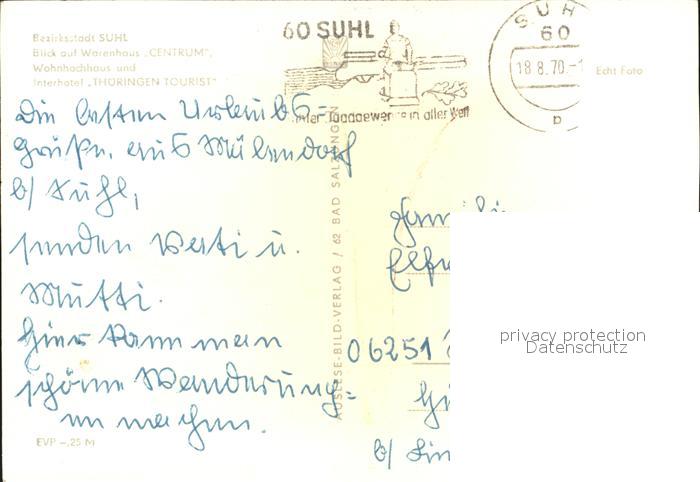 Bezirksstadt SUHL
Blick auf Warenhaus „CENTRUM",
Wohnhochhaus und
Interhotel „THÜRINGEN TOURIST"
60 SUHL
Jagdgewehre in aller Welt
SUHL
60
18.8.70.-1
b
Echt Foto
Die besten Urlaubs-
grüße, aus Mäbendorf
b/ Suhl,
senden Vati u.
Mutti.
Hier kann man
schöne Wanderung-
en machen.
EVP -,25 M
AUSLESE-BILD-VERLAG / 62 BAD SALZUNGEN
Familie
06251
b/
privacy protection
Datenschutz